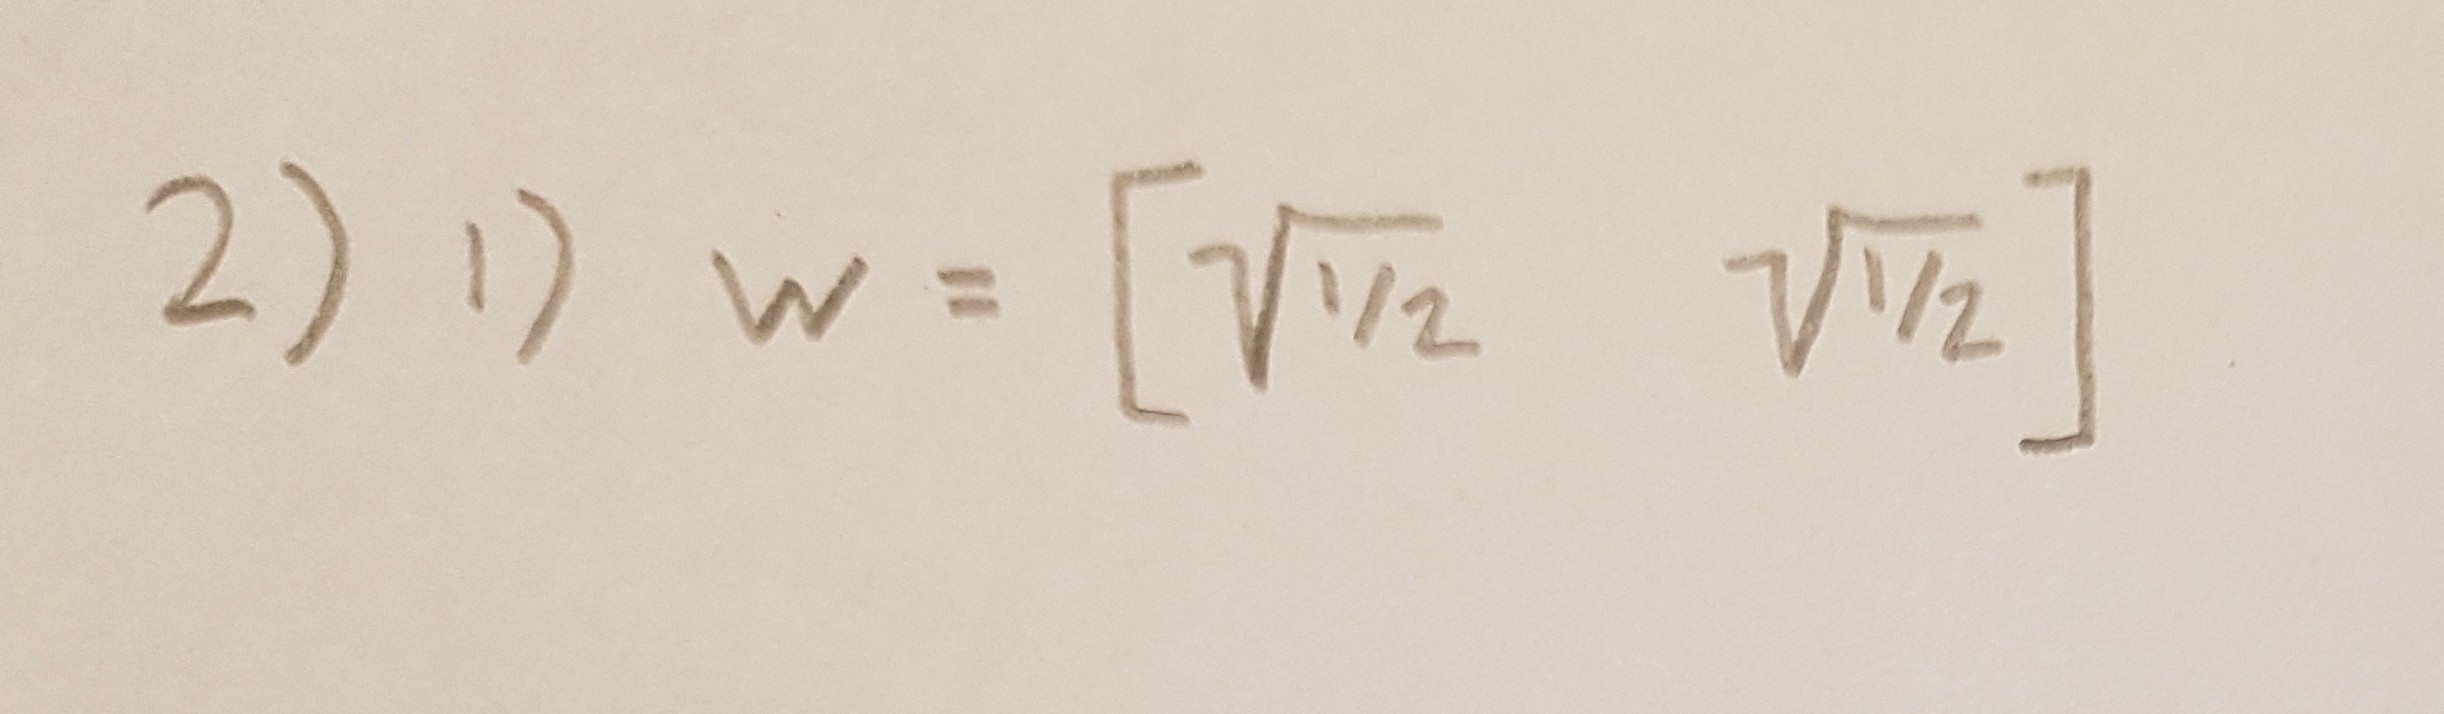 2) 1) w = [√1/2 √1/2]